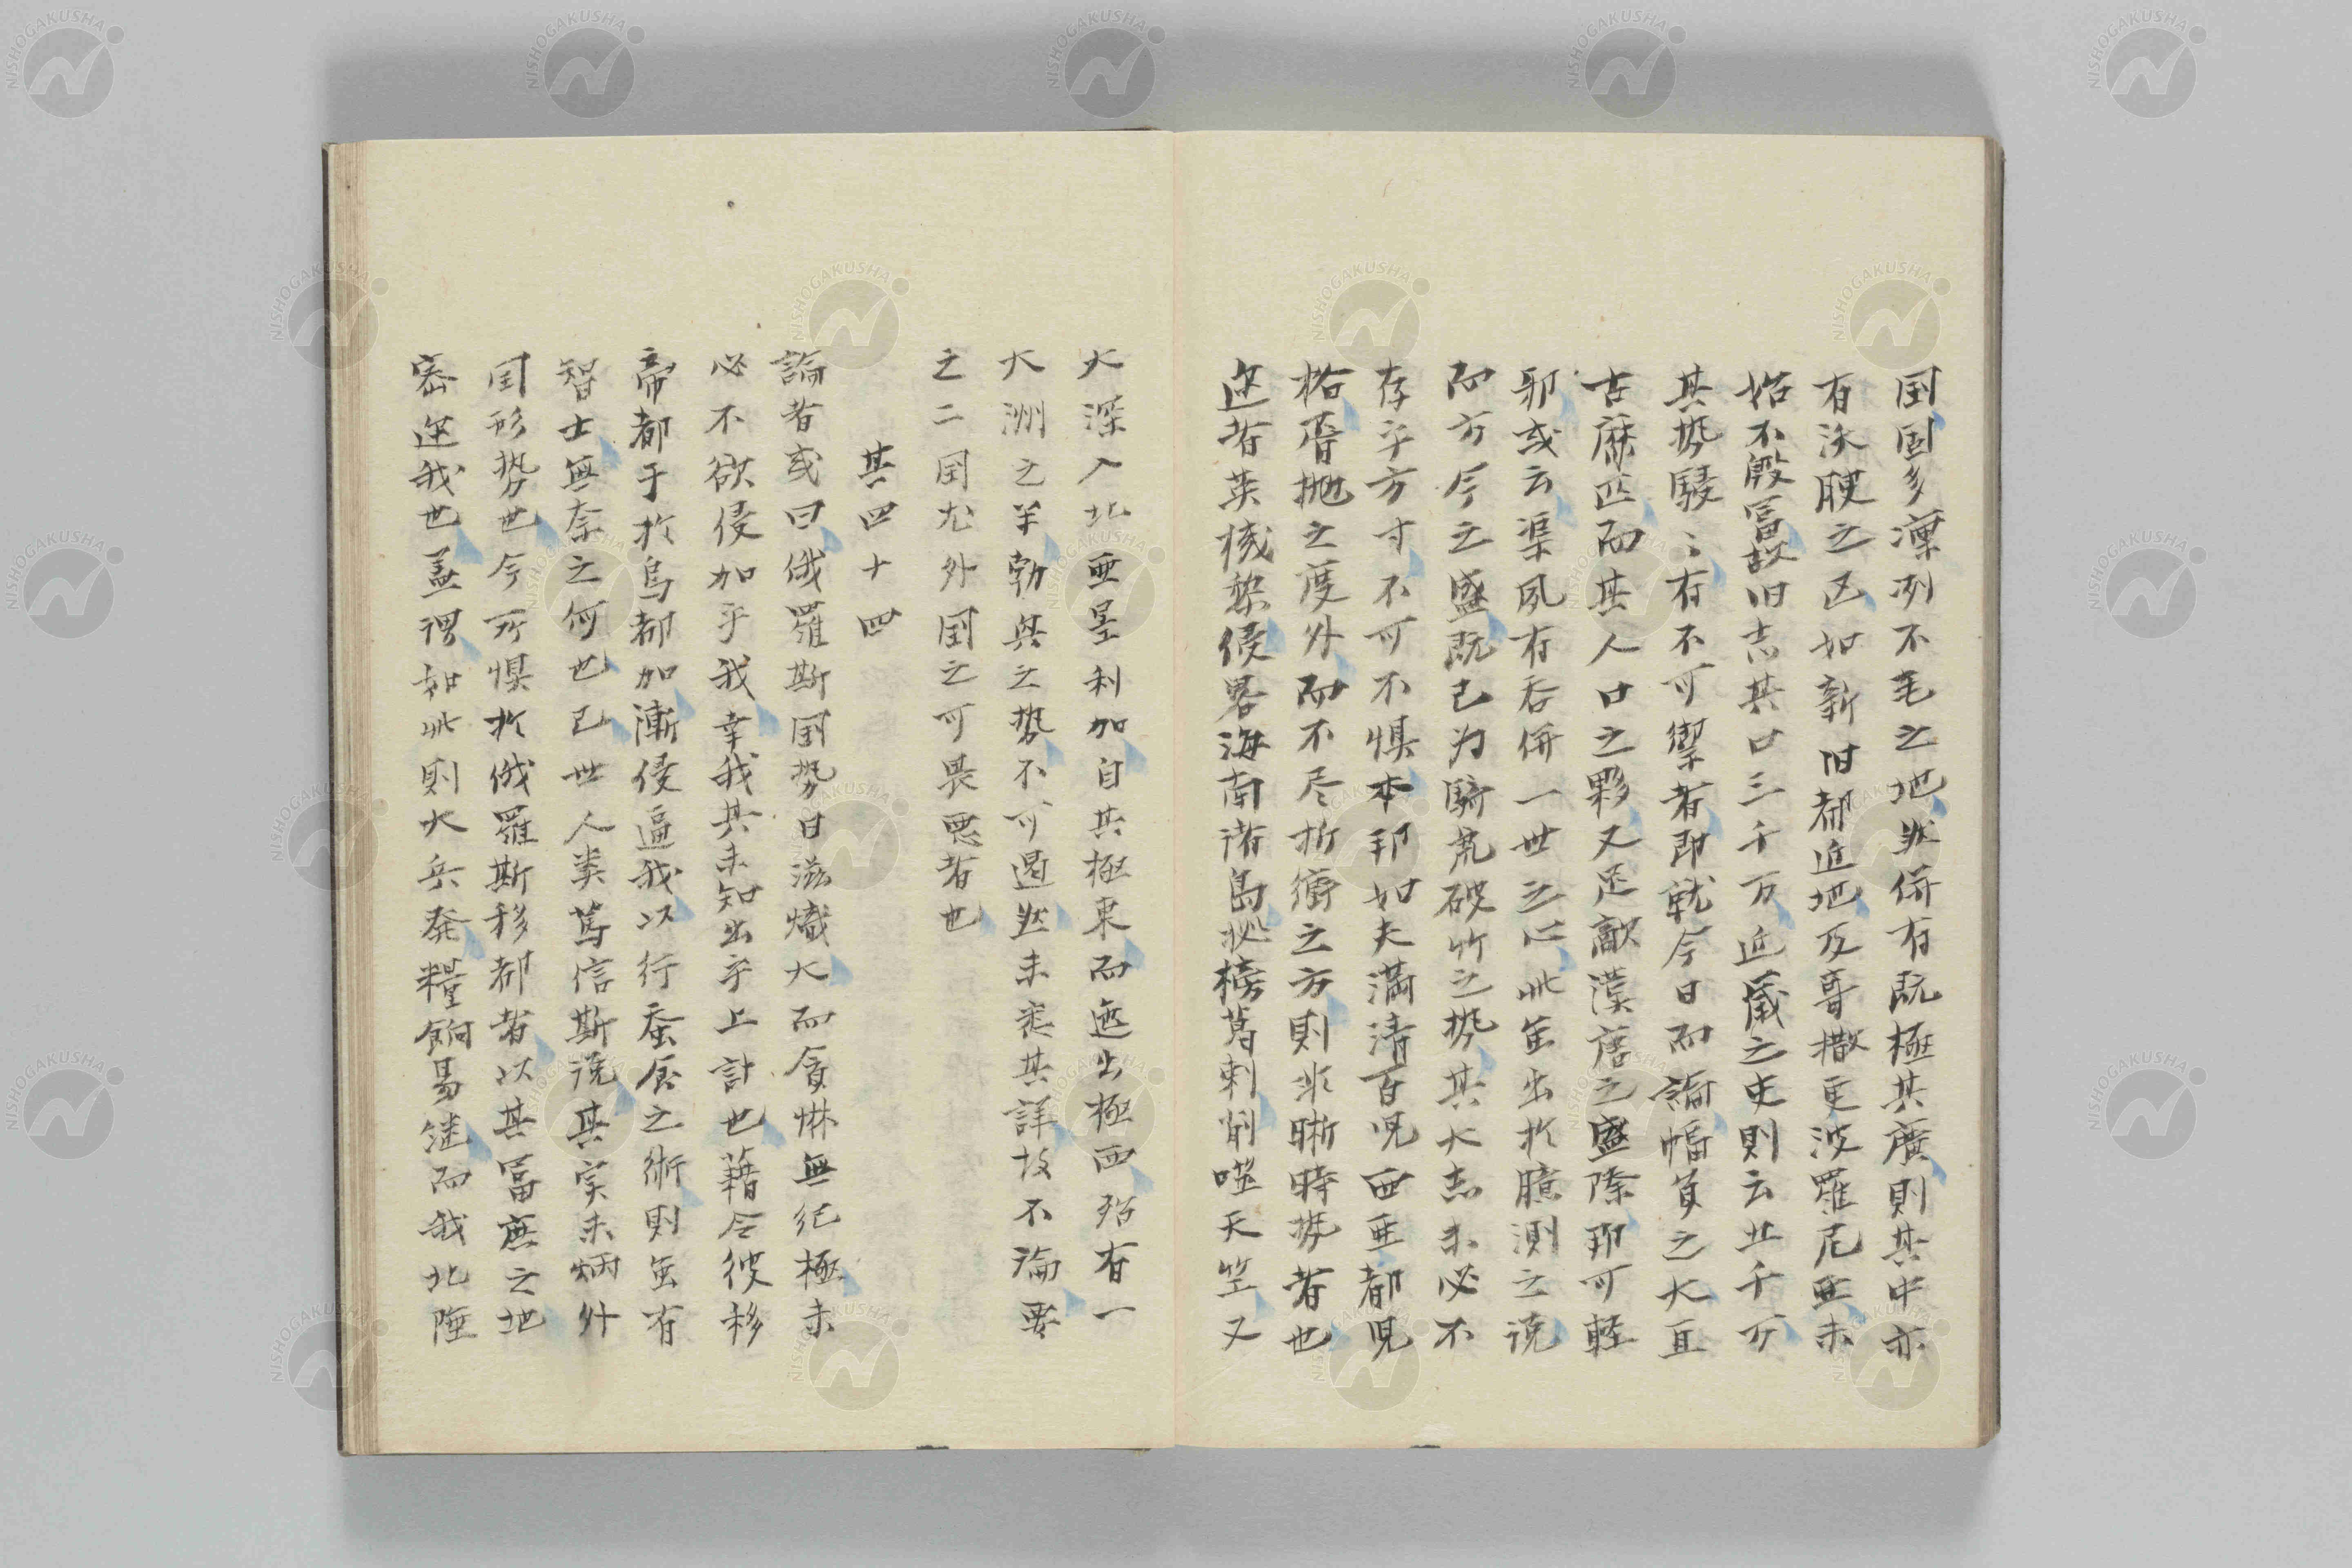 国国多凛冽不毛之地然併有既極其廣則其中亦
有沃腴之区如新旧都近地及哥撒更波羅尼亜未
始不殷富故旧志其口三千万近歳之史則云廿千万
其勢駸〻有不可禦者即就今日而論幅員之大亘
古麻匹而其人口之夥又足敵漢唐之盛際耶可軽
邪或云渠夙有呑併一世之心此虽出於臆測之説
而方今之盛既已为騎虎破竹之勢其大志未必不
存乎方寸不可不惧本邦如夫満清百児西亜都児
格層抛之度外而不尽折衝之方則非晰時勢者也
迩者英機黎侵畧海南諸島拠榜葛剌削噬天竺又
大深入北亜墨利加自其極東而遮出極西殆有一
大洲之半勃興之勢不可遏然未悉其詳故不論要
之二国尤外国之可畏悪者也
其四十四
論者或曰俄羅斯国勢日滋熾大而貪惏無紀極未
必不欲侵加乎我幸我其未知出乎上計也藉令彼移
帝都于於烏都加漸侵逼我以行蚕食之術則虽有
智士無奈之何也已世人岽篤信斯説其实未炳外
国形勢也今所惧於俄羅斯移都者以其富庶之地
密迩我也蓋謂如此則大兵発糧餉易継而我北陲
NISHOGAKUSHA